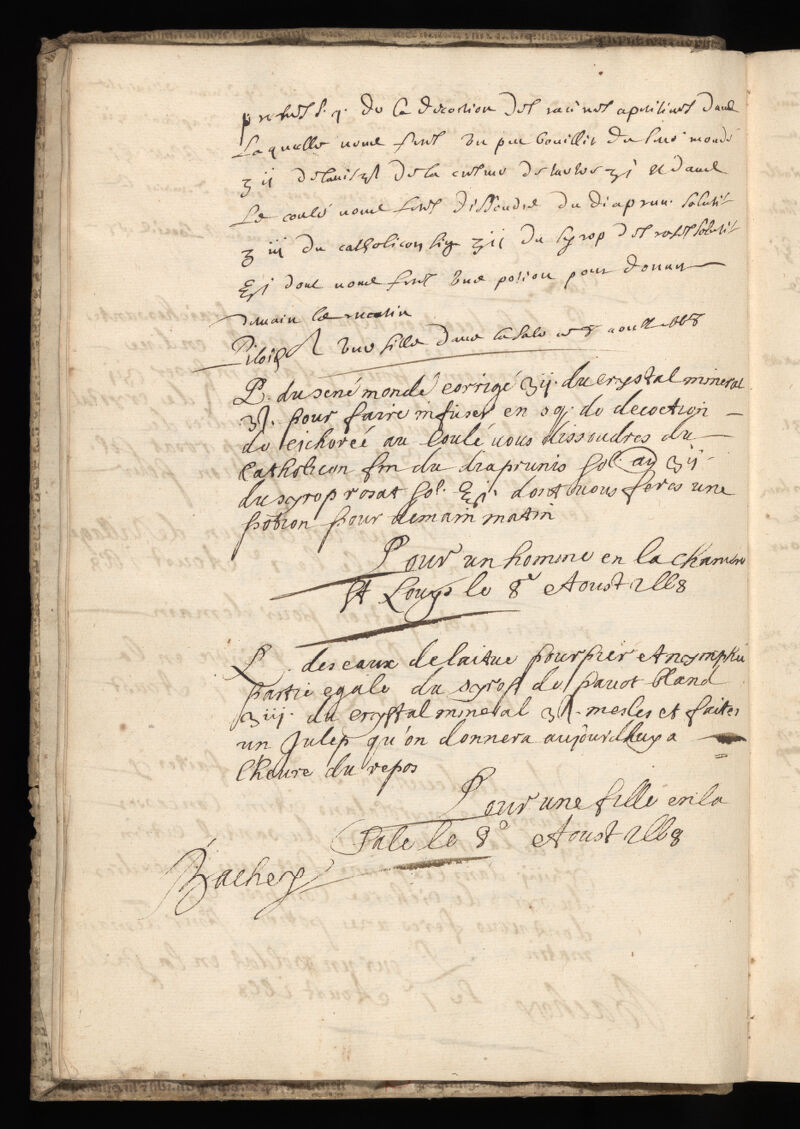 prenes de la decoction des racines apiritives dans
Laquelle vous feres un peu bouillir du sené mondé
ʒ ii de la cresme de tartre ʒ i et dans
Le coulé vous feres dissoudre du diaprun solutif
ʒ iii du catholicon fin ʒ ii du syrop de roses solutif
℥ i dont vous feres une potion pour donner
demain le matin
une fille dans la sale ce 8 aoust 1668
℞. du sené mondé corrigé ʒ ii. du crystal mineral
ʒ ß. pour faire infuser en s.q. de decoction
de cichoreé au coulé vous dissoudres du
catholicon fin du diaprunis sol. añ ʒ ii
du syrop rosat sol. ℥ i. dont vous feres une
potion pour demain matin
Pour un homme en la chambre
St Louys le 8e Aoust 1668
℞. des eaux de laitue pourpier et nymphée
partie egale du syrop de pavot bland
ʒ iii. du crystal mineral ʒ ß. mesles et faites
un Julep qu'on donnera aujourdhuy a
l'heure du repos
Pour une fille en la
Sale le 8o Aoust 1668
Bachey